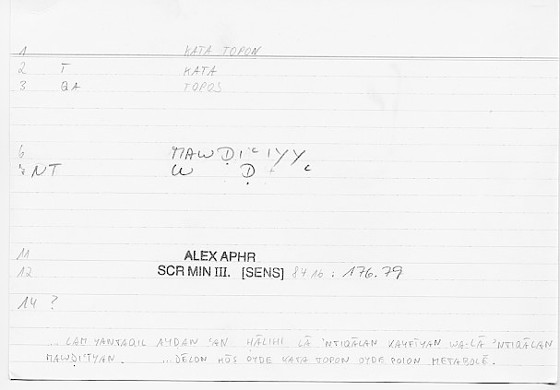 1 KATA TOPON
2 T KATA
3 QA TOPOS
6 MAWḌIʿIYY
NT W Ḍ ʿ
11 ALEX APHR
12 SCR MIN III. [SENS] 8416 : 176.79
14 ?
... LAM YANTAQIL AYḌAN ʾAN ḤĀLIHI LĀ ʾNTIQĀLAN KAYFĪYAN WA-LĀ ʾNTIQĀLAN
MAWḌIʿĪYAN. ... DĒLON HŌS OYDE KATA TOPON OYDE POION METABOLĒ.